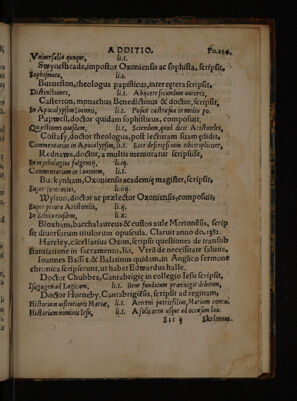 ADDITIO. Fo.254.
Vniuersalia quoque, li.i.
Swyneshcade, impostor Oxoniensis ac sophista, scripsit,
Sophismata, li.i.
Burneston, theologus papisticus, inter cętera scripsit,
Distinctiones, li.i. Abijcere secundum autores,
Casterton, monachus Benedictinus & doctor, scripsit,
In Apocalypsim Ioannis, li.i. Posuit castra sua in modũ po.
Pupwell, doctor quidam sophisticus, composuit,
Quęstiones quasdam, li.i. Sciendum, quod dicit Aristoteles,
Costasy, doctor theologus, post se liquisse fertur suam ędidit,
Commentarios in Apocalypsim, li.i. Ecce descripsi eam tibi tripliciter,
Rednaws, doctor, a multis memoratur scripsisse,
In mythologias fulgentij, li.iij.
Commentarium in Ioannem, li.i.
Burkynham, Oxoniensis academię magister, scripsit,
Super sententias, li.iiij.
Wylton, doctor ac prælector Oxoniensis, composuit,
Super priora Aristotelis, li.ij.
In Ethicæ eiusdem, li.x.
Bloxham, bacchalaureus & custos aulæ Mertonẽsis, scrip
sit diuersorum titulorum opuscula. Claruit anno do. 1381.
Harcley, cãcellarius Oxon, scripsit questiones de transub
stantiatione in sacramento, lib. Verũ de necessitate salutis.
Ioannes Basset, & Balatinus quidam, in Anglico sermone
chronica scripserunt, ut habet Edwardus halle.
Doctor Chubbes, Cantabrigię in collegio Iesu scripsit,
Isagogen ad Logicam, li.i. Bene fundatum præexigit debitum,
Doctor Horneby, Cantabrigiẽsis, scripsit ad reginam,
Historiam uisitationis Mariæ, li.i. Aeterni patris filius, Mariam concu.
Historiam nominis Iesu, li.i. A solis ortu usque ad occasum,
Sss ij Skeltonus.